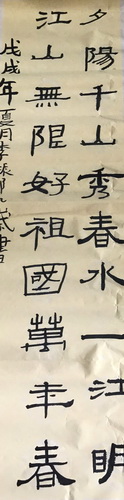 夕陽千山秀春水一江明
江山無限好祖國萬年春
戊戌年夏月李